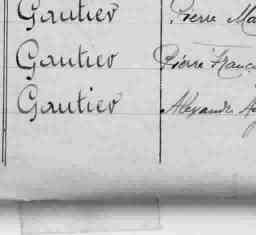 Gautier Pierre Ma
Gautier Pierre Franç
Gautier Alexandre